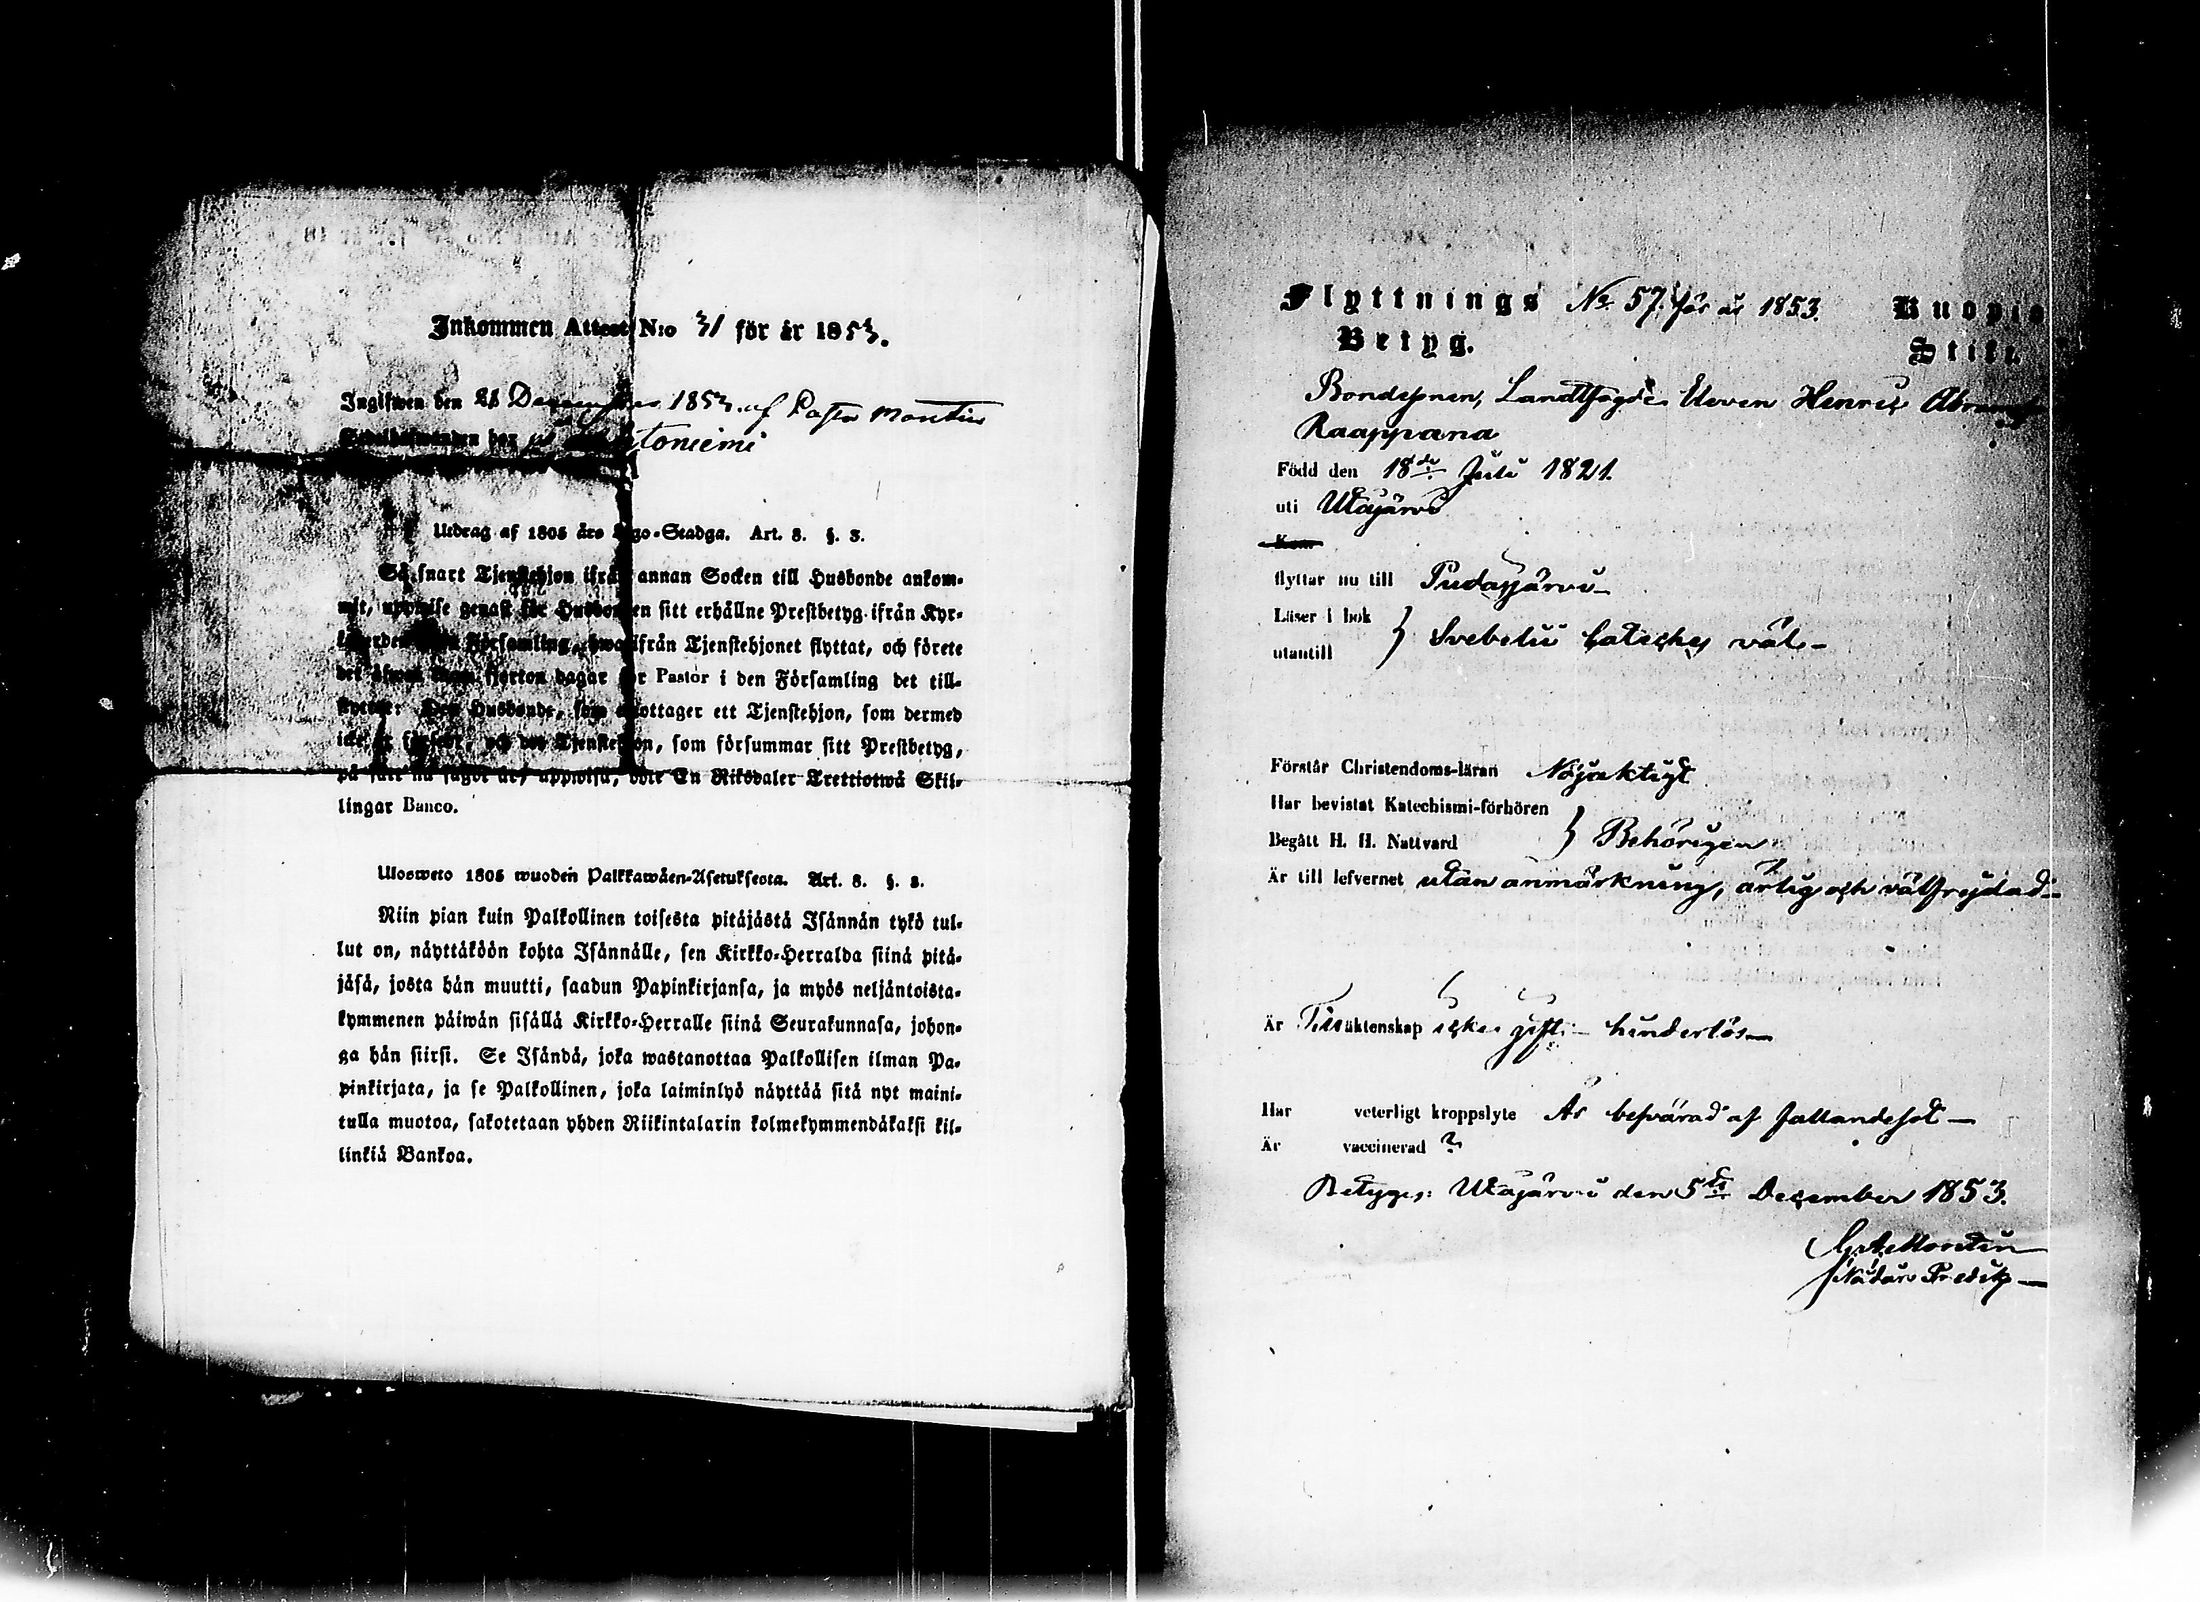 Inkommen Attest N:o 31 för år 1853.
Ingifwen den 21 December 1853 af Pastor Montin
Sedelhafwanden bor på toniemi
Utdrag af 1805 års Lego-Stadga. Art. 8. §. 3.
Så snart Tjenstehjon ifrån annan Socken till Husbonde ankom-
mit, uppwise genast för Husbonden sitt erhållne Prestbetyg ifrån Kyr-
koherden i den Församling, hwarifrån Tjenstehjonet flyttat, och förete
det äfwen inom fjorton dagar för Pastor i den Församling det till-
flyttar. Den Husbonde, som emottager ett Tjenstehjon, som dermed
icke är försedt, och det Tjenstehjon, som försummar sitt Prestbetyg,
på sätt nu sagdt är, uppwisa, böte En Riksdaler Trettiotwå Skil-
lingar Banco.
Ulosweto 1805 wuoden Palkkawäen-Asetuksesta. Art. 8. §. 3.
Niin pian kuin Palkollinen toisesta pitäjästä Isännän tykö tul-
lut on, näyttäköön kohta Isännälle, sen Kirkko-Herralda siinä pitä-
jäsä, josta hän muutti, saadun Papinkirjansa, ja myös neljäntoista-
kymmenen päiwän sisällä Kirkko-Herralle siinä Seurakunnasa, johon-
ga hän siirsi. Se Isändä, joka wastanottaa Palkollisen ilman Pa-
pinkirjata, ja se Palkollinen, joka laiminlyö näyttää sitä nyt maini-
tulla muotoa, sakotetaan yhden Riikintalarin kolmekymmendäkaksi kil-
linkiä Bankoa.
Flyttnings No 57. för år 1853. Kuopio
Betyg. Stift.
Bondesonen, Henric
Raappana
Född den 18de Juli 1821.
uti Utajärvi
Kom
flyttar nu till Pudasjärvi
Läser i bok
utantill } Svebelii Cateches väl
Förstår Christendoms-läran Nöjaktigt
Har bevistat Katechismi-förhören
Begått H. H. Nattvard } Behörigen
Är till lefvernet utan anmärkning, ärlig och välfrejdad
Är Till äktenskap icke gift hinderlös
Har veterligt kroppslyte Är besvärad af fallandesot
Är vaccinerad ?
Betygas: Utajärvi den 5te December 1853.
Montin